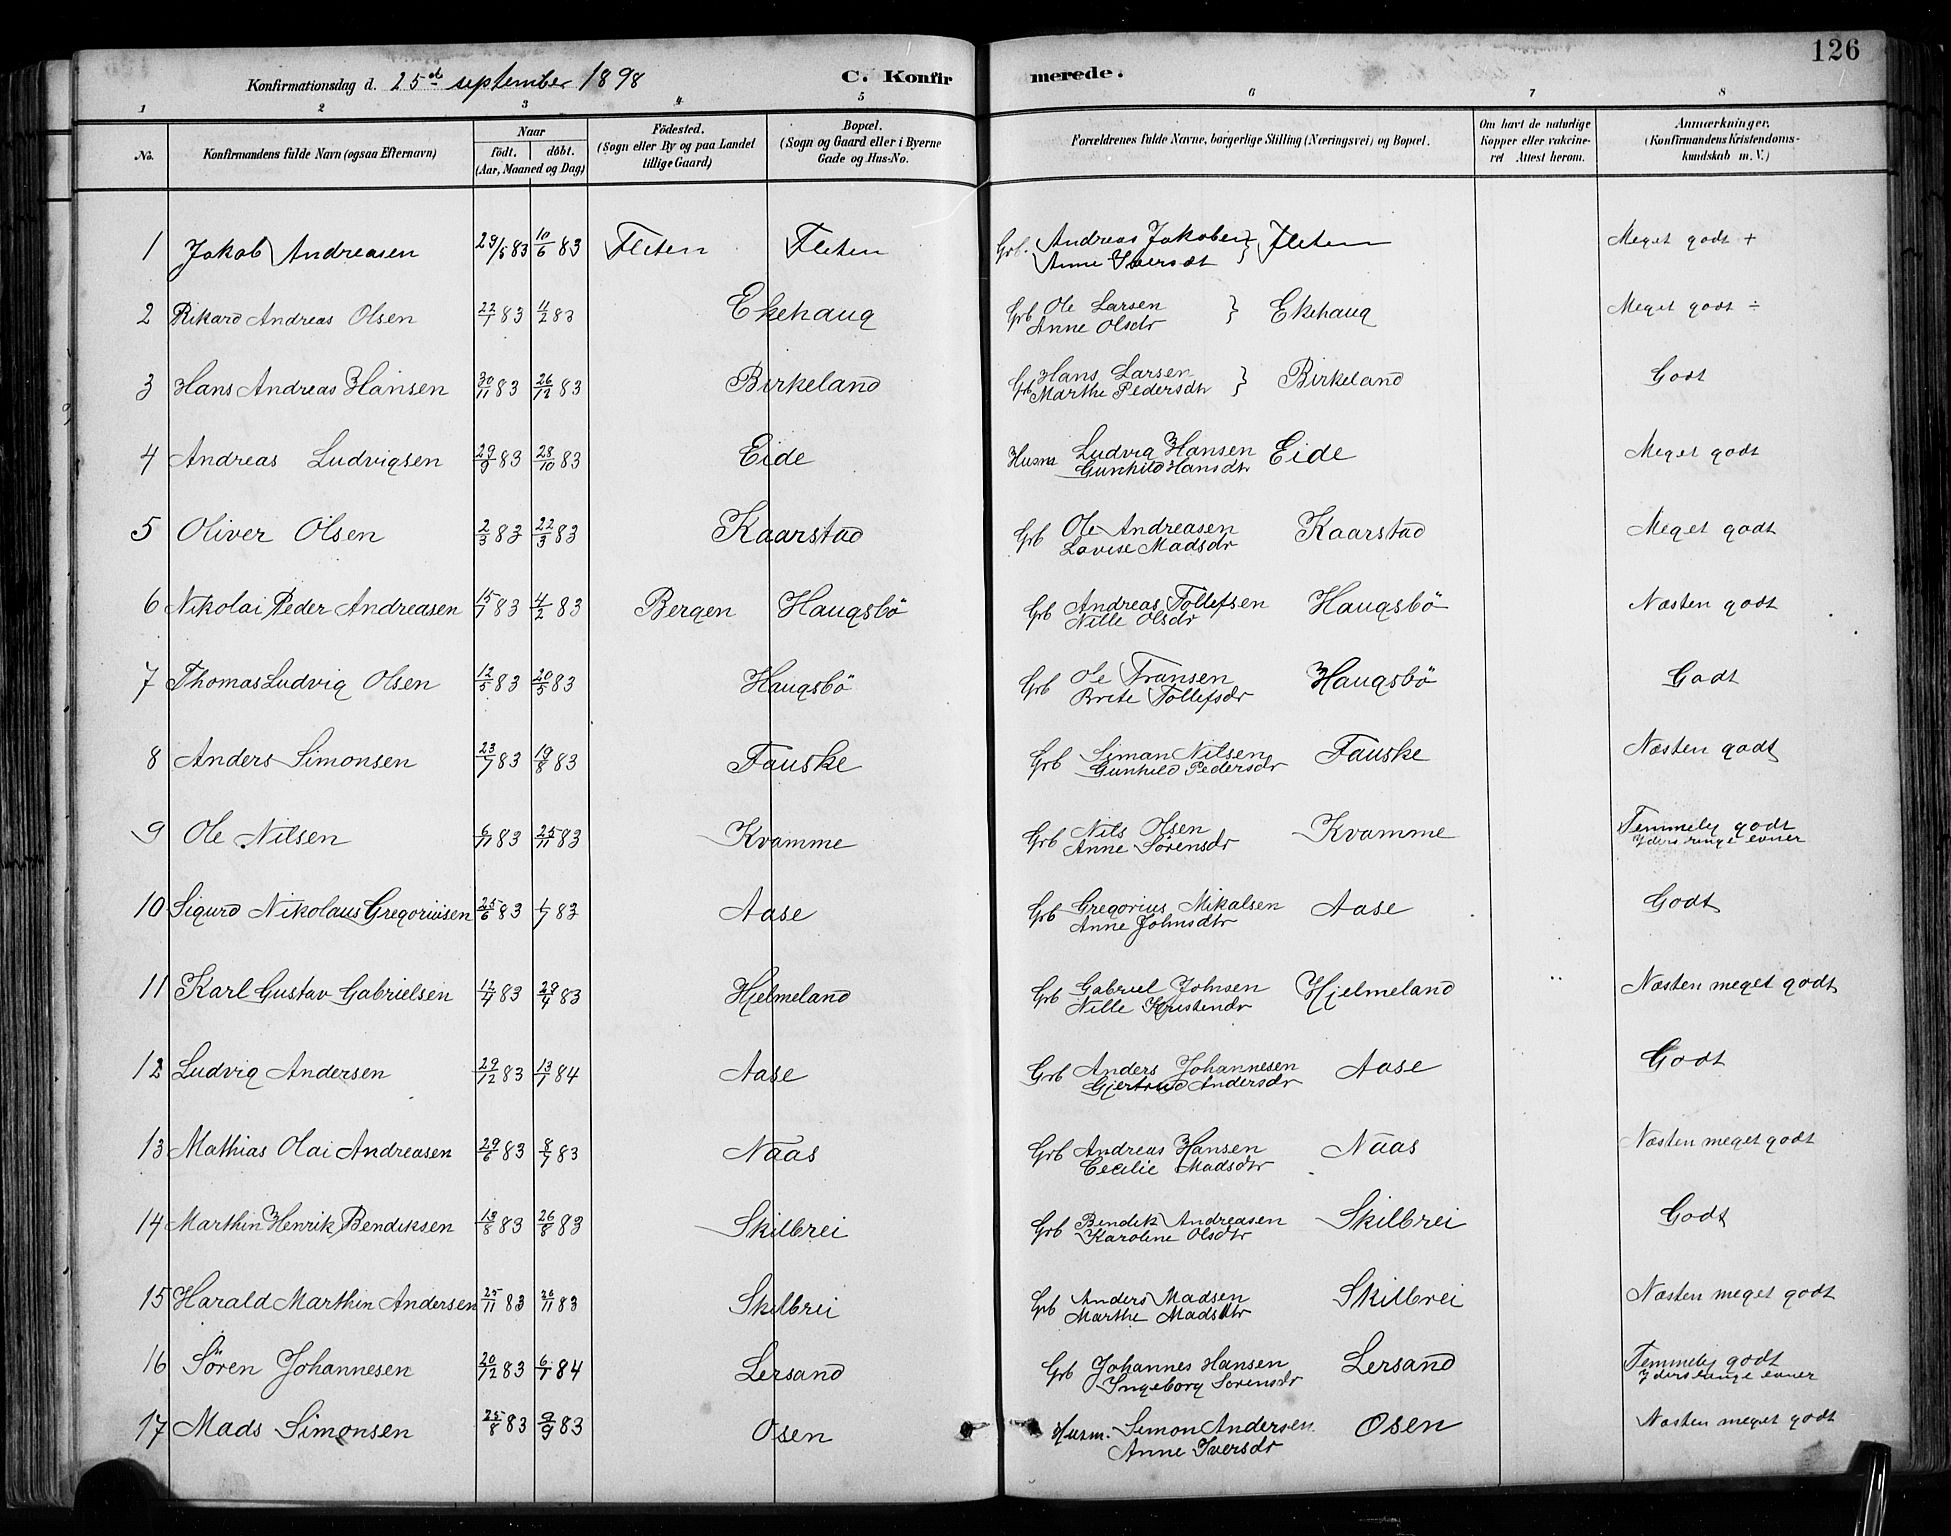 126
Konfirmationsdag d. 25de september 1898 C. Konfirmerede.
1 2 3 4 5 6 7 8
No. Konfirmandens fulde Navn (ogsaa Efternavn) Naar födt. döbt. (Aar, Maaned og Dag) Födested. (Sogn eller By og paa Landet tillige Gaard) Bopæl. (Sogn og Gaard eller i Byerne Gade og Hus-No. Forældrenes fulde Navne, borgerlige Stilling (Næringsvei) og Bopæl. Om havt de naturlige Kopper eller vakcineret Attest herom. Anmærkninger. (Konfirmandens Kristendomskundskab m. V.)
1 Jakob Andreasen 29/5 83 10/6 83 Fleten Fleten Grb. Andreas Jakobsen } Fleten Meget godt +
Anne Iversdt
2 Rikard Andreas Olsen 22/1 83 11/2 83 Ekehaug Grb Ole Larsen } Ekehaug Meget godt ÷
Anne Olsdtr
3 Hans Andreas Hansen 30/11 83 26/12 83 Birkeland Grb Hans Larsen } Birkeland Godt
Marthe Pedersdtr
4 Andreas Ludvigsen 29/9 83 28/10 83 Eide Husm Ludvig Hansen Eide Meget godt
Gunhild Hansdtr
5 Oliver Olsen 2/3 83 22/3 83 Kaarstad Grb Ole Andreasen Kaarstad Meget godt
Lovise Madsdr
6 Nikolai Peder Andreasen 15/1 83 4/2 83 Bergen Haugsbö Grb Andreas Tollefsen Haugsbö Næsten godt
Nille Olsdr
7 Thomas Ludvig Olsen 12/5 83 20/5 83 Haugsbö Grb Ole Fransen Haugsbö Godt
Brite Tollefsdr
8 Anders Simonsen 23/7 83 19/8 83 Fauske Grb Siman Nilsen Fauske Næsten godt
Gunhild Pedersdr
9 Ole Nilsen 6/11 83 25/11 83 Kvamme Grb Nils Olsen Kvamme Temmelig godt
Anne Sörensdr Yderst ringe evner
10 Sigurd Nikolaus Gregoriusen 25/6 83 1/7 83 Aase Grb Gregorius Mikalsen Aase Godt
Anne Johnsdtr
11 Karl Gustav Gabrielsen 12/4 83 29/4 83 Hjelmeland Grb Gabriel Johnsen Hjelmeland Næsten meget godt
Nille Kristendr
12 Ludvig Andersen 29/12 83 13/1 84 Aase Grb Anders Johannesen Aase Godt
Gjertrud Andersdr
13 Mathias Olai Andreasen 29/6 83 8/7 83 Naas Grb Andreas Hansen Naas Næsten meget godt
Cecilie Madsdtr
14 Marthin Henrik Bendiksen 13/8 83 26/8 83 Skilbrei Grb Bendik Andreasen Skilbrei Godt
Karoline Olsdtr
15 Harald Marthin Andersen 25/11 83 26/11 83 Skilbrei Grb Anders Madsen Skilbrei Næsten meget godt
Marthe Madsdtr
16 Sören Johannesen 20/12 83 6/1 84 Lersand Grb Johannes Hansen Lersand Temmelig godt
Ingeborg Sorensdr Yderst ringe evner
17 Mads Simonsen 25/8 83 9/9 83 Osen Husm. Simon Andersen Osen Næsten meget godt
Anne Iversdr